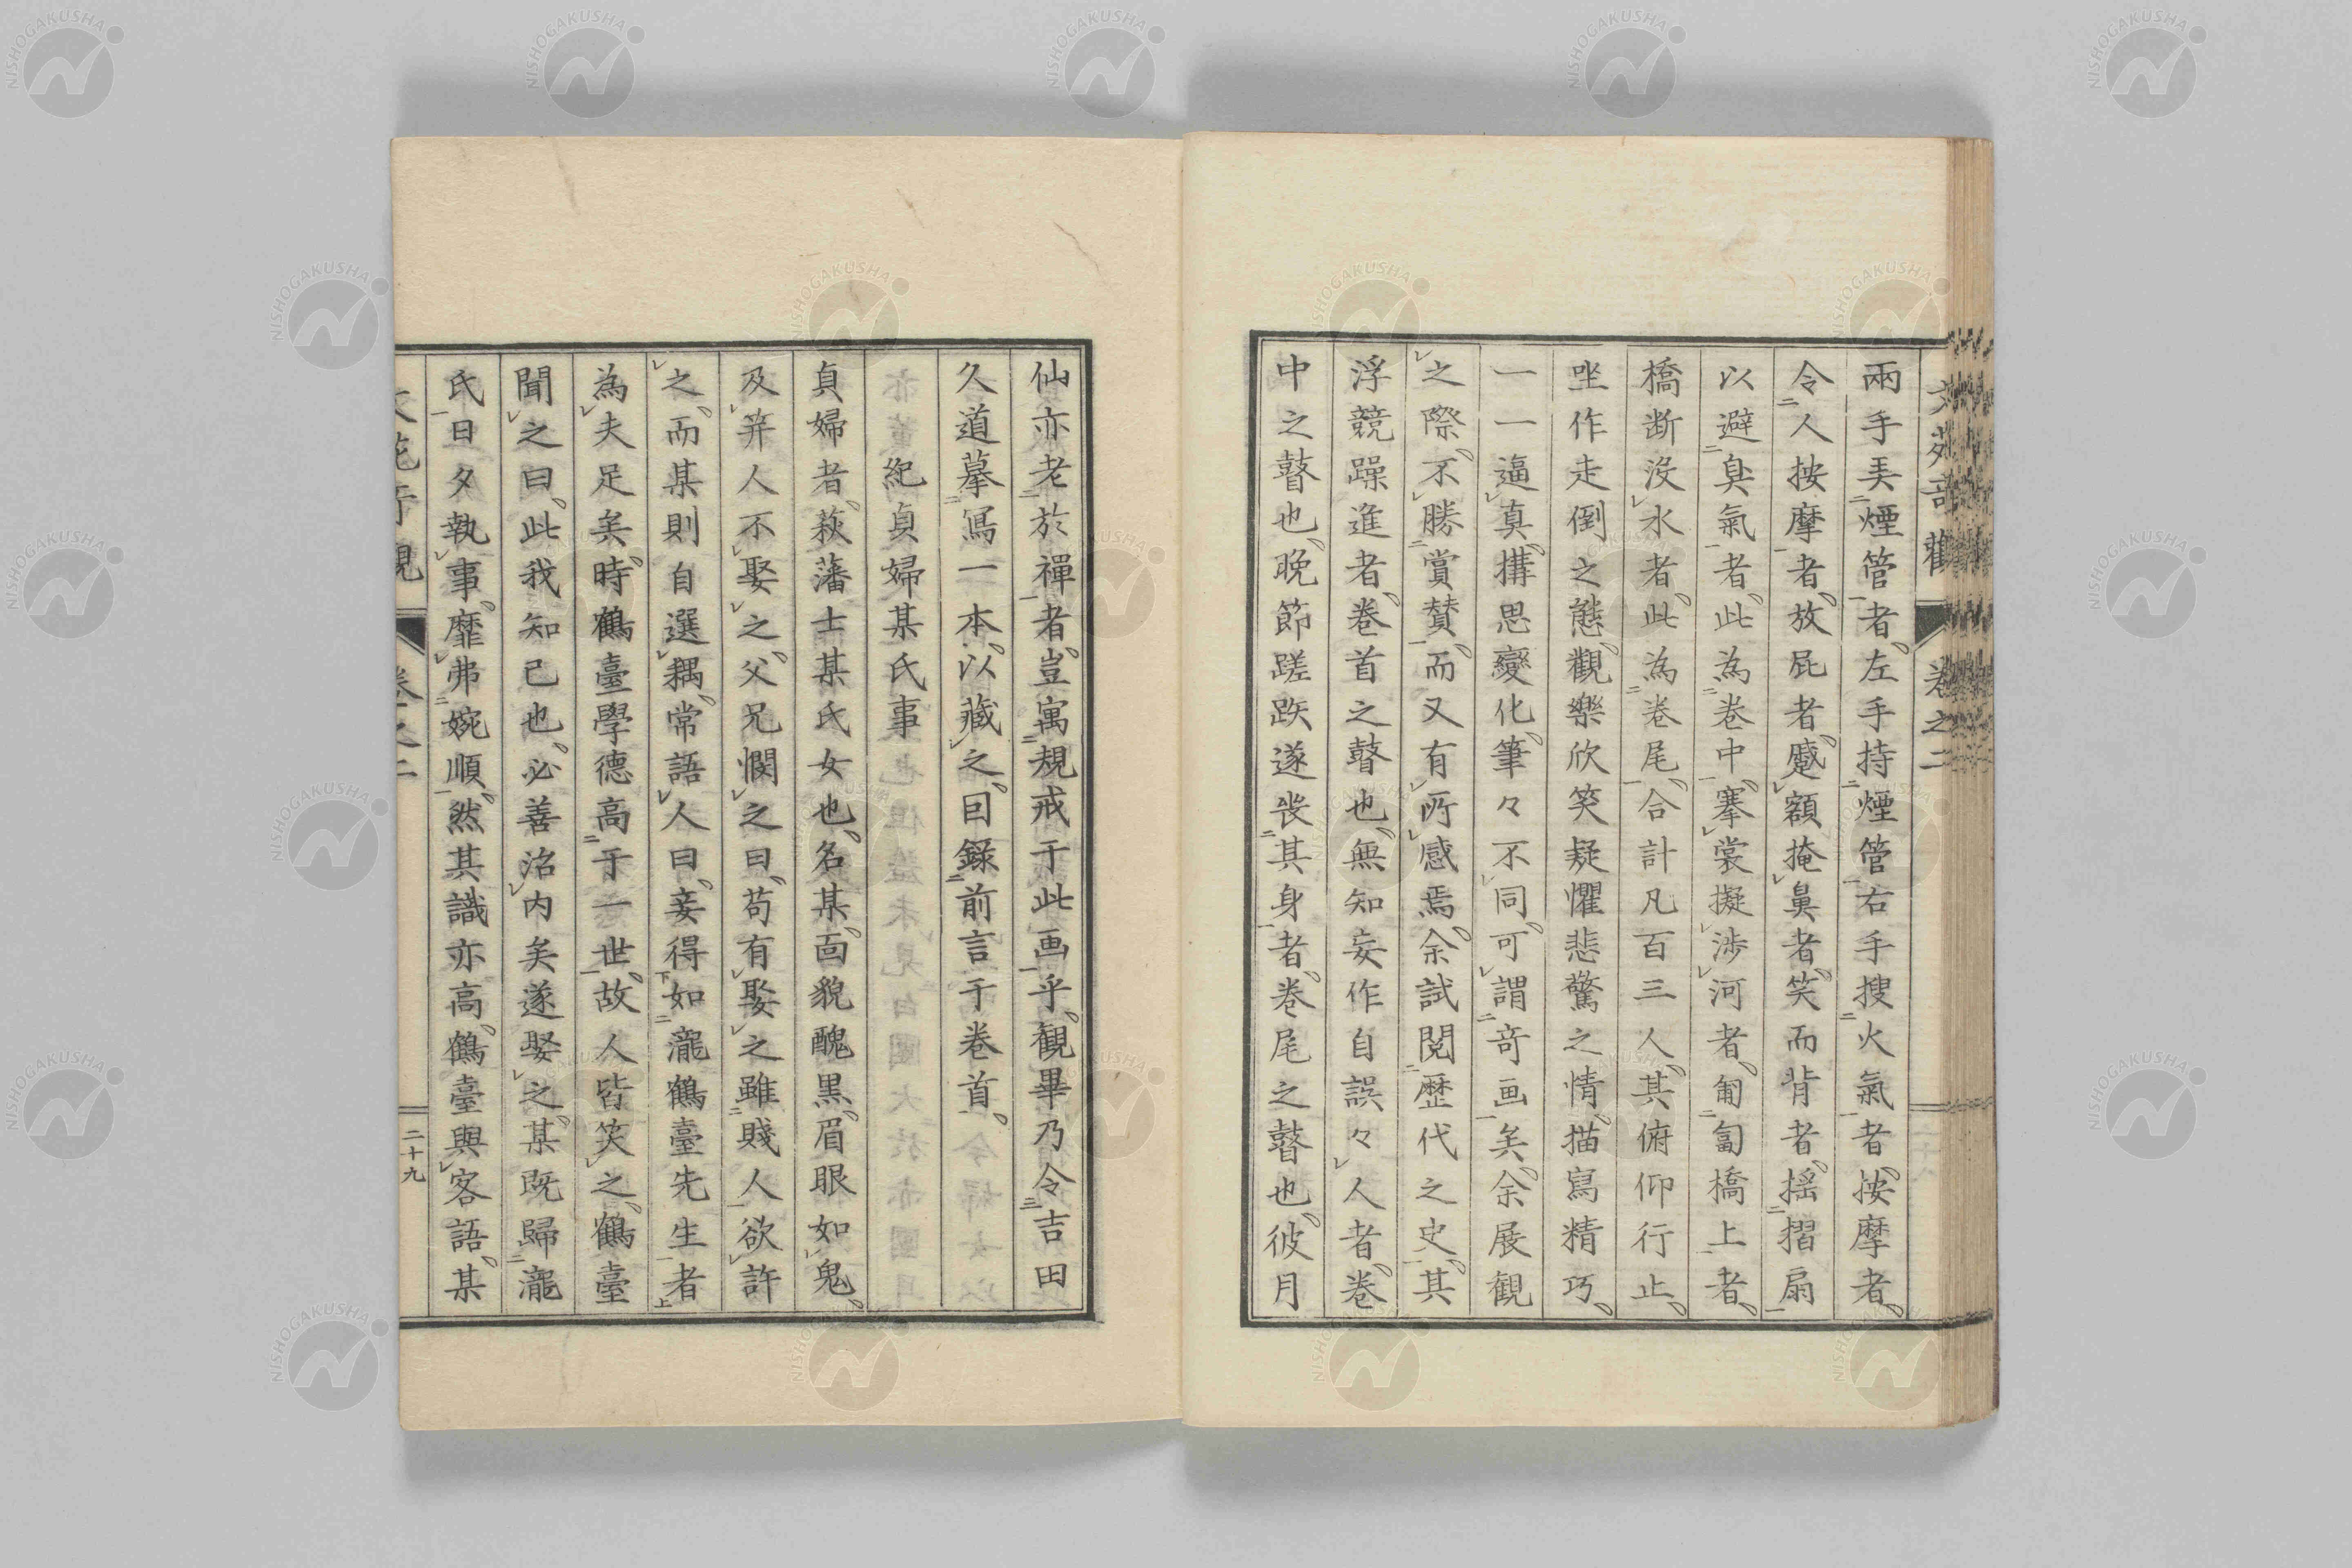 兩手弄煙管者左手持煙管右手搜火氣者按摩者
令人按摩者放屁者蹙額掩鼻者笑而背者揺摺扇
以避臭氣者此為卷中搴裳擬渉河者匍匐橋上者
橋断没水者此為卷尾合計凡百三人其俯仰行止
坐作走倒之態觀樂欣笑疑懼悲驚之情描寫精巧
一一逼真搆思變化筆々不同可謂竒画矣余展觀
之際不勝賞賛而又有所感焉余試閲歴代之史其
浮競躁進者卷首之瞽也無知妄作自誤々人者卷
中之瞽也晩節蹉跌遂喪其身者卷尾之瞽也彼月
仙亦老於禪者豈寓規戒于此画乎観畢乃令吉田
久道摹寫一本以藏之因録前言于卷首
紀貞婦某氏事
貞婦者萩藩士某氏女也名某面貌醜黒眉眼如鬼
及筓人不娶之父兄憫之曰苟有娶之雖賤人欲許
之而某則自選耦常語人曰妾得如瀧鶴臺先生者
為夫足矣時鶴臺學德高于一世故人皆笑之鶴臺
聞之曰此我知己也必善治内矣遂娶之某既歸瀧
氏日夕執事靡弗婉順然其識亦高鶴臺與客語某
卷之二
二十九